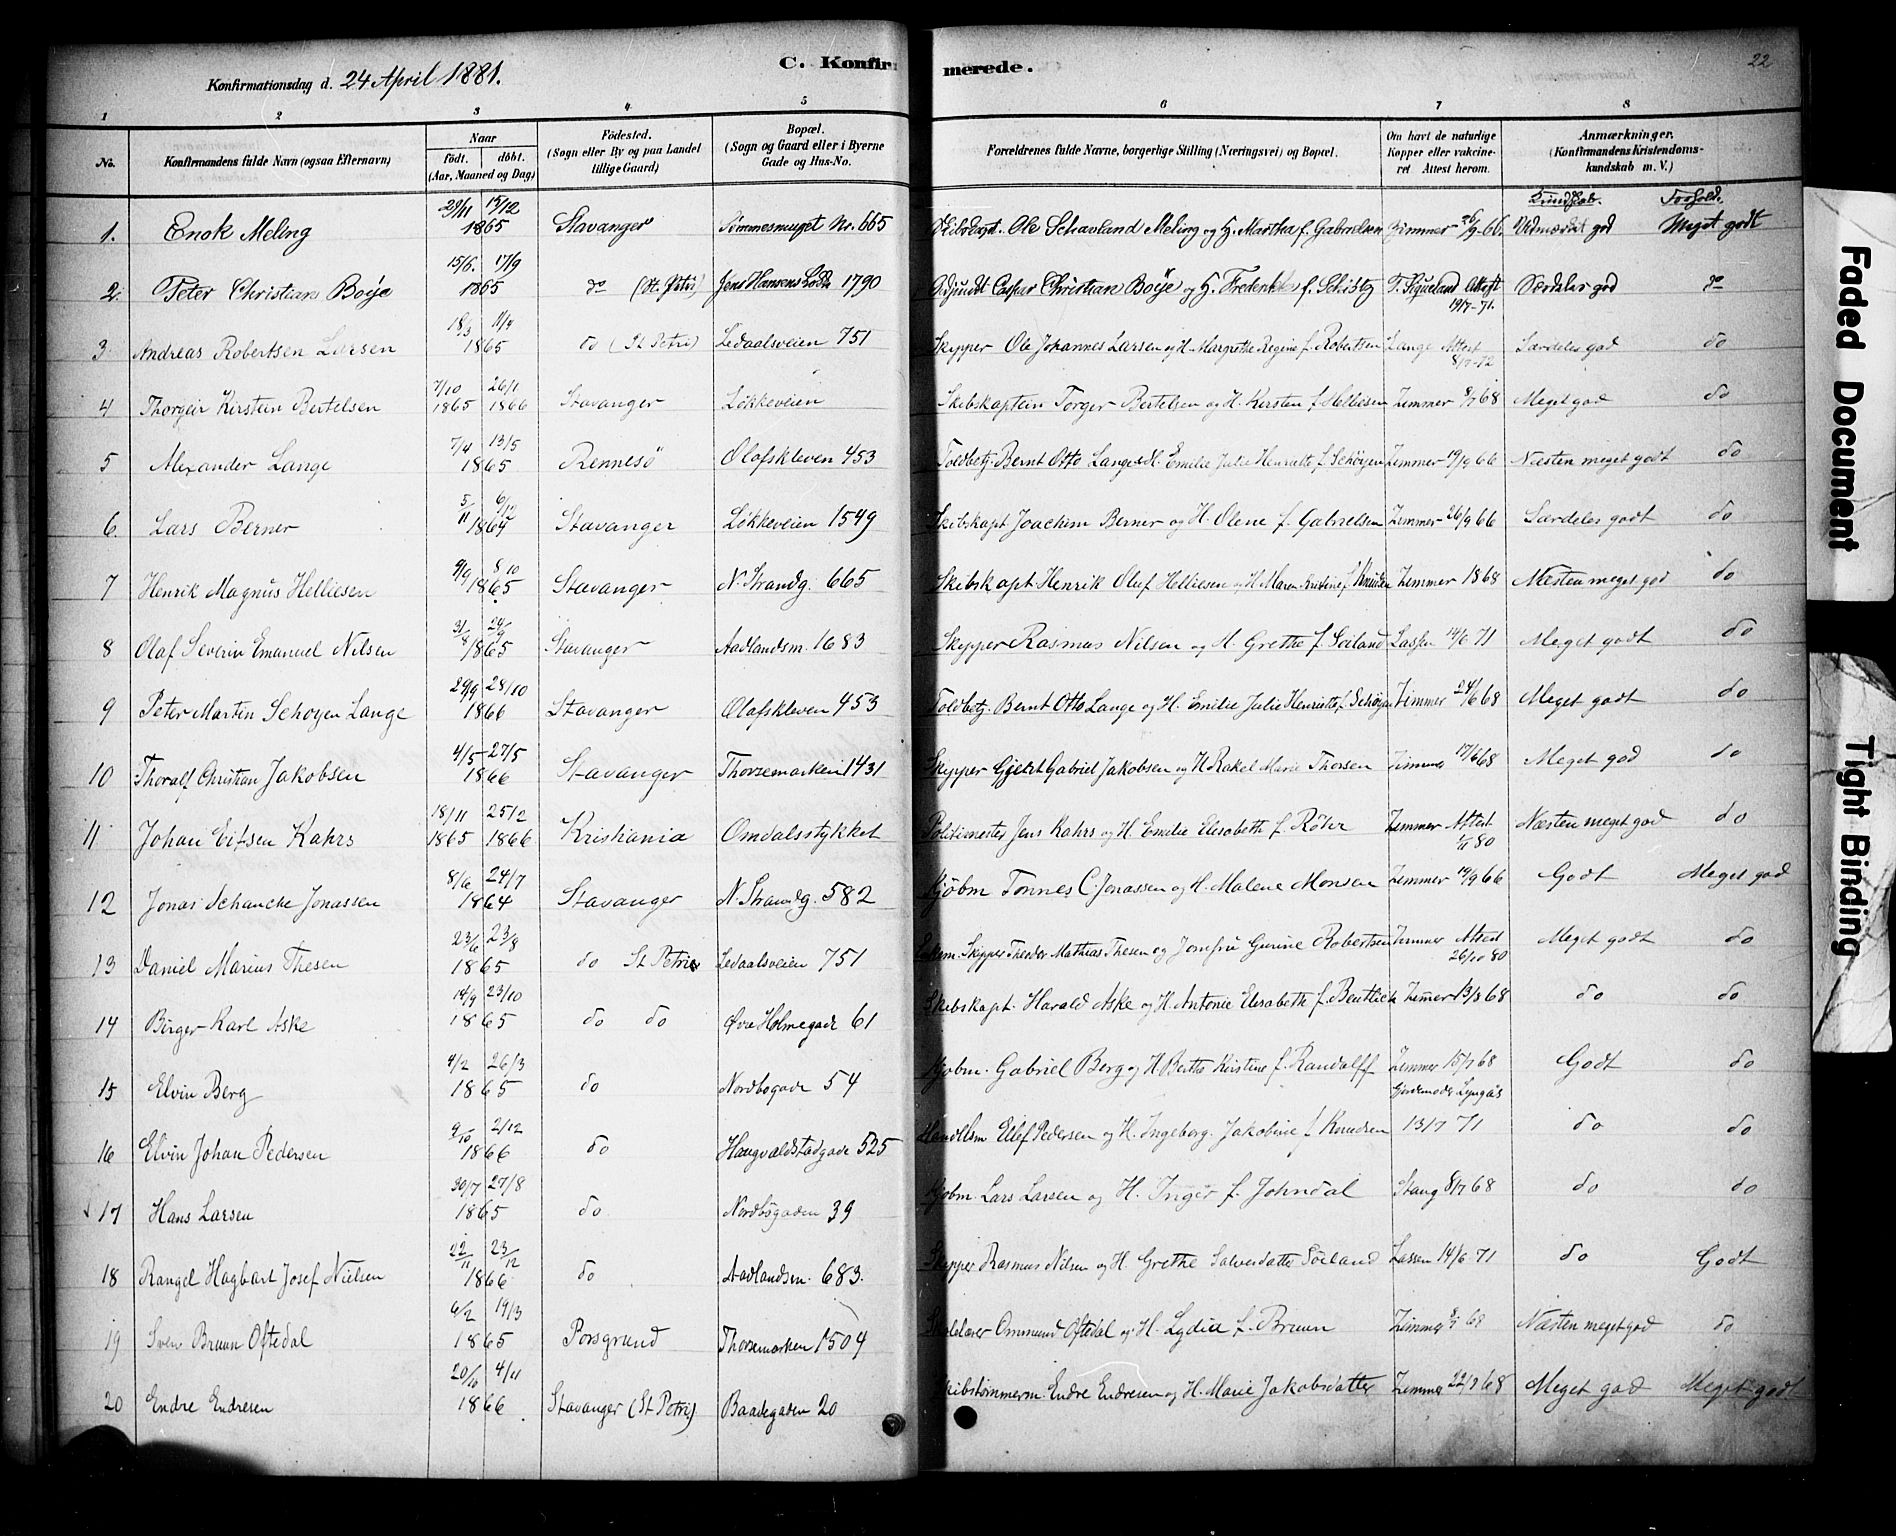 Konfirmationsdag d. 24 April 1881.
C. Konfirmerede.
22
1 2 3 4 5 6 7 8
No.
Konfirmandens fulde Navn (ogsaa Efternavn)
Naar
født. døbt.
(Aar, Maaned og Dag)
Fødested.
(Sogn eller By og paa Landet
tillige Gaard)
Bopæl.
(Sogn og Gaard eller i Byerne
Gade og Hus-No.
Forældrenes fulde Navne, borgerlige Stilling (Næringsvei) og Bopæl.
Om havt de naturlige
Kopper eller vakcine-
ret Attest herom.
Anmærkninger.
(Konfirmandens Kristendoms-
kundskab m. V.)
Kundskab. Forhold.
1. Enok Meling 29/11 15/12 1865 Stavanger Nr. 665 Ole Schavland Meling og H. Martha f. Gabrielsen Zimmer 26/9-66. Udmærket god Meget godt
2. Peter Christian Boije 15/6. 17/9 1865 do (St. Petri) 1790 Adjunkt Caspar Christian Boije og H. f. Schiøtz Attest 19/7-71. Særdeles god do
3 Andreas Robertsen Larsen 18/3 11/4 1865 do (St Petri) Ledaalsveien 751 Skipper Ole Johannes Larsen og H. Margrethe Regine f. Robertsen Lange Attest Særdeles god do
4 Thorgeir Kirstein Bertelsen 7/10 1865 26/1 1866 Stavanger Løkkeveien Skibskaptein Torger Bertelsen og H. Kirsten f. Helliesen Zimmer 8/7 68 Meget god do
5 Alexander Lange 7/4 13/5 1865 Rennesö Olafskleven 453 Toldbetj. Bernt Otto Lange & H. Emilie Julie Henriette f. Schøyen Zimmer 19/9 66 Næsten meget godt do
6. Lars Berner 5/11 6/12 1864 Stavanger Løkkeveien 1549 Skibskapt Joachim Berner og H. Olene f. Gabrielsen Zimmer 26/9 66 Særdeles godt do
7 Henrik Magnus Helliesen 9/9 8/10 1865 Stavanger N. Strandg. 665 Skibskapt Henrik Oluf Helliesen og H. Maren Kristine f. Knudsen Zimmer 1868 Næsten meget god do
8 Olaf Severin Emanuel Nilsen 31/8 24/9 1865 Stavanger Aadlandsm. 1683 Skipper Rasmus Nilsen og H. Grethe f. Soiland Lassen 14/6 71 Meget godt do
9 Peter Martin Schoyen Lange 29/9 28/10 1866 Stavanger Olafskleven 453 Toldbetj. Bernt Otto Lange og H. Emilie Julie Henriette f. Schøyen Zimmer 24/6 68 Meget godt do
10 Thoralf Christian Jakobsen 4/5 27/5 1866 Stavanger Thorsemarken 1431 Skipper Gjert Gabriel Jakobsen og H Rakel Marie Thorsen Zimmer 17/6 68 Meget god do
11 Johan Kahrs 18/11 1865 25/2 1866 Kristiania Omdalsstykket Politimester Jens Kahrs og H. Emilie Elisabeth f. Röhr Zimmer Attest 80 Næsten meget god do
12 Jonas Schancke Jonassen 8/6 24/7 1864 Stavanger N. Strandg. 582 Kjøbm Tønnes C. Jonassen og H. Malene Monsen Zimmer 19/9 66 Godt Meget god
13 Daniel Marius Thesen 23/6 23/8 1865 do St Petri Ledaalsveien 751 Skipper Theodor Mathias Thesen og Jomfru Gurine Robertsen Zimmer Attest 26/10 80 Meget godt do
14 Birger Karl Aske 14/9 23/10 1865 do do Øvre Holmegade 61 Skibskapt. Harald Aske og H. Antonie Elisabeth f. Bentlich Zimmer 13/3 68 do do
15 Elvin Berg 4/2 26/3 1865 do Nordbøgade 54 Kjøbm. Gabriel Berg og H. Bertha Kirstine f. Randulff Zimmer 15/7 68 Godt do
16 Elvin Johan Pedersen 9/10 2/12 1866 do Haugvaldstadgade 525 Handelsm Ellef Pedersen og H. Ingeborg Jakobine f Knudsen Gjordemoder Lyngås 13/7 71 do do
17 Hans Larsen 30/7 27/8 1865 do Nordbøgaden 39 Kjøbm. Lars Larsen og H. Inger f. Johndal Stang 8/7 68 do do
18 Rangel Hagbart Josef Nielsen 22/11 23/12 1866 do Aadlandsm. 683. Skipper Rasmus Nilsen og H. Grethe Salvesdatter Söiland Lassen 14/6 71 do Godt
19 Sven Bruun Oftedal 6/2 19/3 1865 Porsgrund Thorsemarken 1504 Ommund Oftedal og H. Lydia f. Bruun Zimmer 68 Næsten meget god do
20 Endre Endresen 1866 Stavanger (St Petri) Baadegaden 20 Skibstømmerm. Endre Endresen og H. Marie Jakobsdatter Zimmer 22/7 68 Meget god Meget godt
Faded Document
Tight Binding